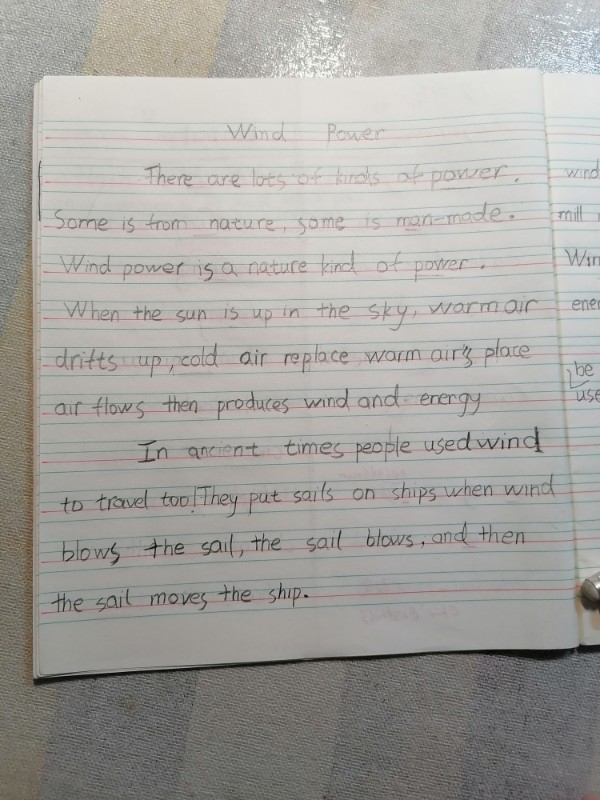 Wind Power
There are lots of kinds of power.
Some is from nature, some is man-made.
Wind power is a nature kind of power.
When the sun is up in the sky, warm air
drifts up, cold air replace warm air's place
air flows then produces wind and energy
In ancient times people used wind
to travel too! They put sails on ships when wind
blows the sail, the sail blows, and then
the sail moves the ship.
wind
mill
Win
ener
be
use